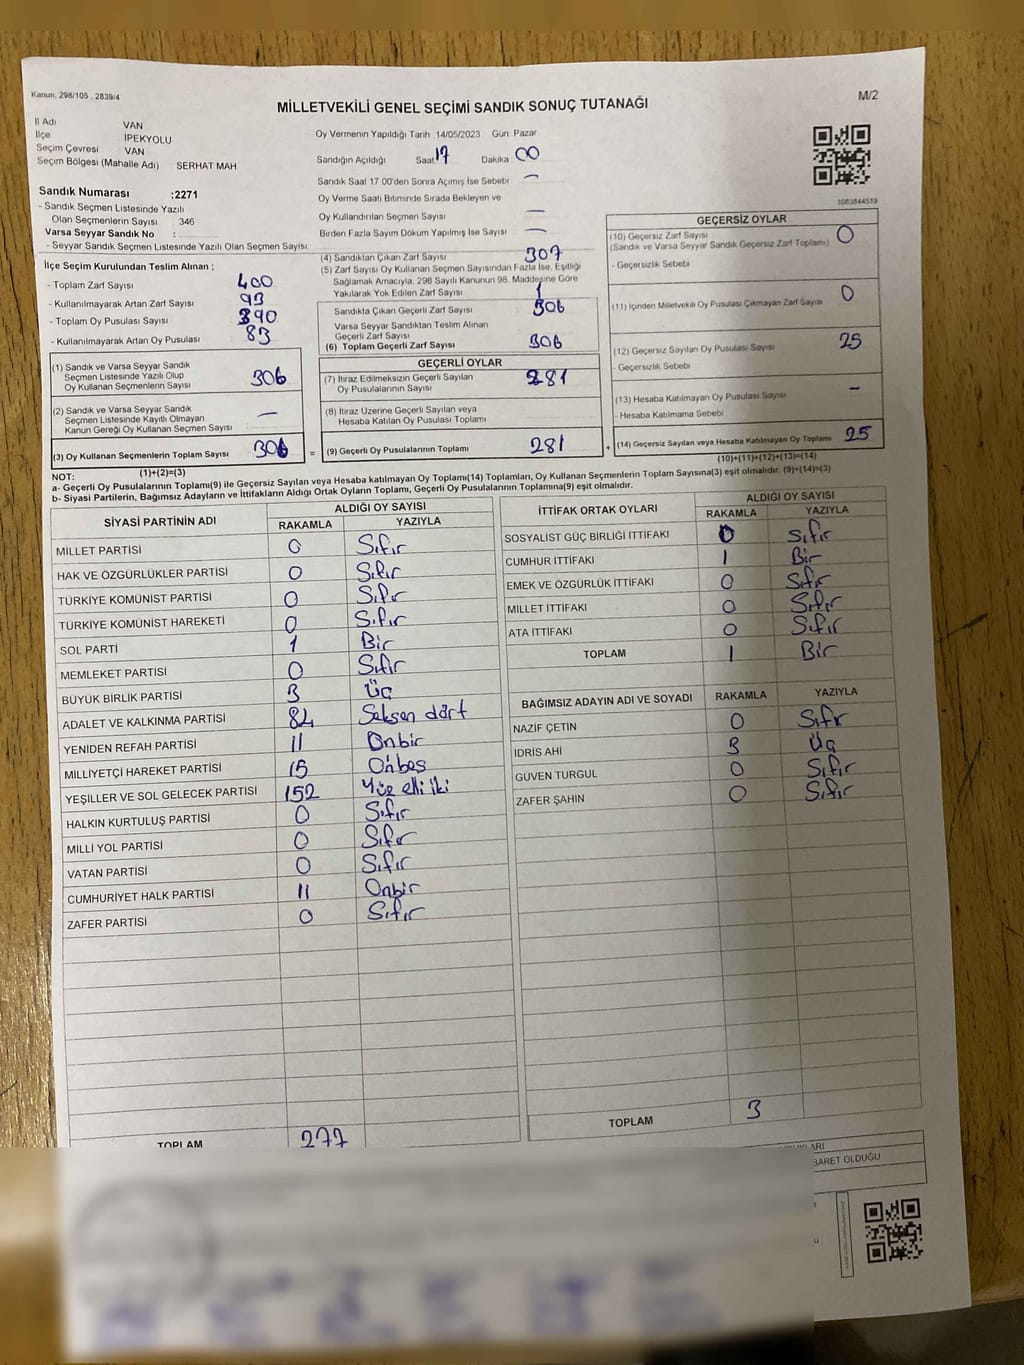 Kanun: 298/105 , 2839/4
MİLLETVEKİLİ GENEL SEÇİMİ SANDIK SONUÇ TUTANAĞI
M/2
İl Adı VAN
İlçe İPEKYOLU
Seçim Çevresi VAN
Seçim Bölgesi (Mahalle Adı) SERHAT MAH
Sandık Numarası :2271
- Sandık Seçmen Listesinde Yazılı
Olan Seçmenlerin Sayısı : 346
Varsa Seyyar Sandık No :
- Seyyar Sandık Seçmen Listesinde Yazılı Olan Seçmen Sayısı:
Oy Vermenin Yapıldığı Tarih 14/05/2023 Gün Pazar
Sandığın Açıldığı Saat 17 Dakika 00
Sandık Saat 17 00'den Sonra Açımış İse Sebebi —
Oy Verme Saati Bitiminde Sırada Bekleyen ve
Oy Kullandırılan Seçmen Sayısı —
Birden Fazla Sayım Döküm Yapılmış İse Sayısı —
1083844519
İlçe Seçim Kurulundan Teslim Alınan ;
- Toplam Zarf Sayısı 400
- Kullanılmayarak Artan Zarf Sayısı 93
- Toplam Oy Pusulası Sayısı 390
- Kullanılmayarak Artan Oy Pusulası 83
(1) Sandık ve Varsa Seyyar Sandık
Seçmen Listesinde Yazılı Olup
Oy Kullanan Seçmenlerin Sayısı 306
(2) Sandık ve Varsa Seyyar Sandık
Seçmen Listesinde Kayıtlı Olmayan
Kanun Gereği Oy Kullanan Seçmen Sayısı —
(3) Oy Kullanan Seçmenlerin Toplam Sayısı 306
(1)+(2)=(3)
(4) Sandıktan Çıkan Zarf Sayısı 307
(5) Zarf Sayısı Oy Kullanan Seçmen Sayısından Fazla İse, Eşitliği
Sağlamak Amacıyla, 298 Sayılı Kanunun 98. Maddesine Göre
Yakılarak Yok Edilen Zarf Sayısı 1
Sandıkta Çıkan Geçerli Zarf Sayısı 306
Varsa Seyyar Sandıktan Teslim Alınan
Geçerli Zarf Sayısı
(6) Toplam Geçerli Zarf Sayısı 306
GEÇERLİ OYLAR
(7) İtiraz Edilmeksizin Geçerli Sayılan
Oy Pusulalarının Sayısı 281
(8) İtiraz Üzerine Geçerli Sayılan veya
Hesaba Katılan Oy Pusulası Toplamı
= (9) Geçerli Oy Pusulalarının Toplamı 281 +
GEÇERSİZ OYLAR
(10) Geçersiz Zarf Sayısı 0
(Sandık ve Varsa Seyyar Sandık Geçersiz Zarf Toplamı)
- Geçersizlik Sebebi
(11) İçinden Milletvekili Oy Pusulası Çıkmayan Zarf Sayısı 0
(12) Geçersiz Sayılan Oy Pusulası Sayısı 25
- Geçersizlik Sebebi
(13) Hesaba Katılmayan Oy Pusulası Sayısı —
- Hesaba Katılmama Sebebi
(14) Geçersiz Sayılan veya Hesaba Katılmayan Oy Toplamı 25
(10)+(11)+(12)+(13)=(14)
NOT:
a- Geçerli Oy Pusulalarının Toplamı(9) ile Geçersiz Sayılan veya Hesaba katılmayan Oy Toplamı(14) Toplamları, Oy Kullanan Seçmenlerin Toplam Sayısına(3) eşit olmalıdır. (9)+(14)=(3)
b- Siyasi Partilerin, Bağımsız Adayların ve İttifakların Aldığı Ortak Oyların Toplamı, Geçerli Oy Pusulalarının Toplamına(9) eşit olmalıdır.
SİYASİ PARTİNİN ADI ALDIĞI OY SAYISI
RAKAMLA YAZIYLA
MİLLET PARTİSİ 0 Sıfır
HAK VE ÖZGÜRLÜKLER PARTİSİ 0 Sıfır
TÜRKİYE KOMÜNİST PARTİSİ 0 Sıfır
TÜRKİYE KOMÜNİST HAREKETİ 0 Sıfır
SOL PARTİ 1 Bir
MEMLEKET PARTİSİ 0 Sıfır
BÜYÜK BİRLİK PARTİSİ 3 Üç
ADALET VE KALKINMA PARTİSİ 84 Seksen dört
YENİDEN REFAH PARTİSİ 11 Onbir
MİLLİYETÇİ HAREKET PARTİSİ 15 Onbeş
YEŞİLLER VE SOL GELECEK PARTİSİ 152 Yüz elli iki
HALKIN KURTULUŞ PARTİSİ 0 Sıfır
MİLLİ YOL PARTİSİ 0 Sıfır
VATAN PARTİSİ 0 Sıfır
CUMHURİYET HALK PARTİSİ 11 Onbir
ZAFER PARTİSİ 0 Sıfır
TOPLAM 277
İTTİFAK ORTAK OYLARI ALDIĞI OY SAYISI
RAKAMLA YAZIYLA
SOSYALİST GÜÇ BİRLİĞİ İTTİFAKI 0 Sıfır
CUMHUR İTTİFAKI 1 Bir
EMEK VE ÖZGÜRLÜK İTTİFAKI 0 Sıfır
MİLLET İTTİFAKI 0 Sıfır
ATA İTTİFAKI 0 Sıfır
TOPLAM 1 Bir
BAĞIMSIZ ADAYIN ADI VE SOYADI RAKAMLA YAZIYLA
NAZİF ÇETİN 0 Sıfr
İDRİS AHİ 3 Üç
GÜVEN TURGUL 0 Sıfır
ZAFER ŞAHİN 0 Sıfır
TOPLAM 3
BARET OLDUĞU